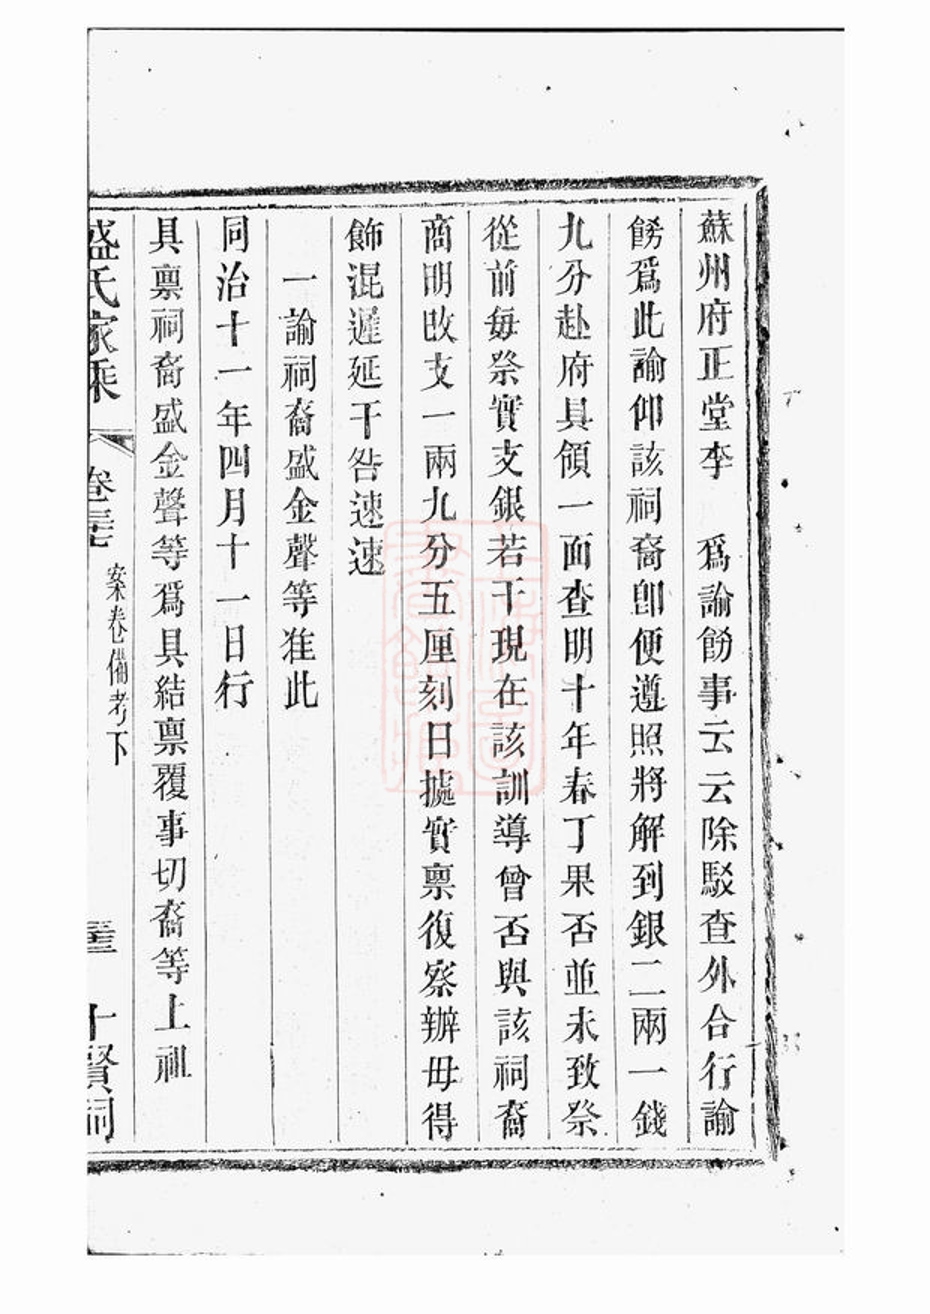 蘇州府正堂李　爲諭飭事云云除駁查外合行諭
飭爲此諭仰該祠裔卽便遵照將解到銀二兩一錢
九分赴府具領一面查明十年春丁果否並未致祭
從前每祭實支銀若干現在該訓導曾否與該祠裔
商明改支一兩九分五厘刻日據實禀復察辦毋得
飾混遲延干咎速速
一諭祠裔盛金聲等准此
同治十一年四月十一日行
具禀祠裔盛金聲等爲具結禀覆事切裔等上祖
盛氏家乘
案卷備考下
十賢祠